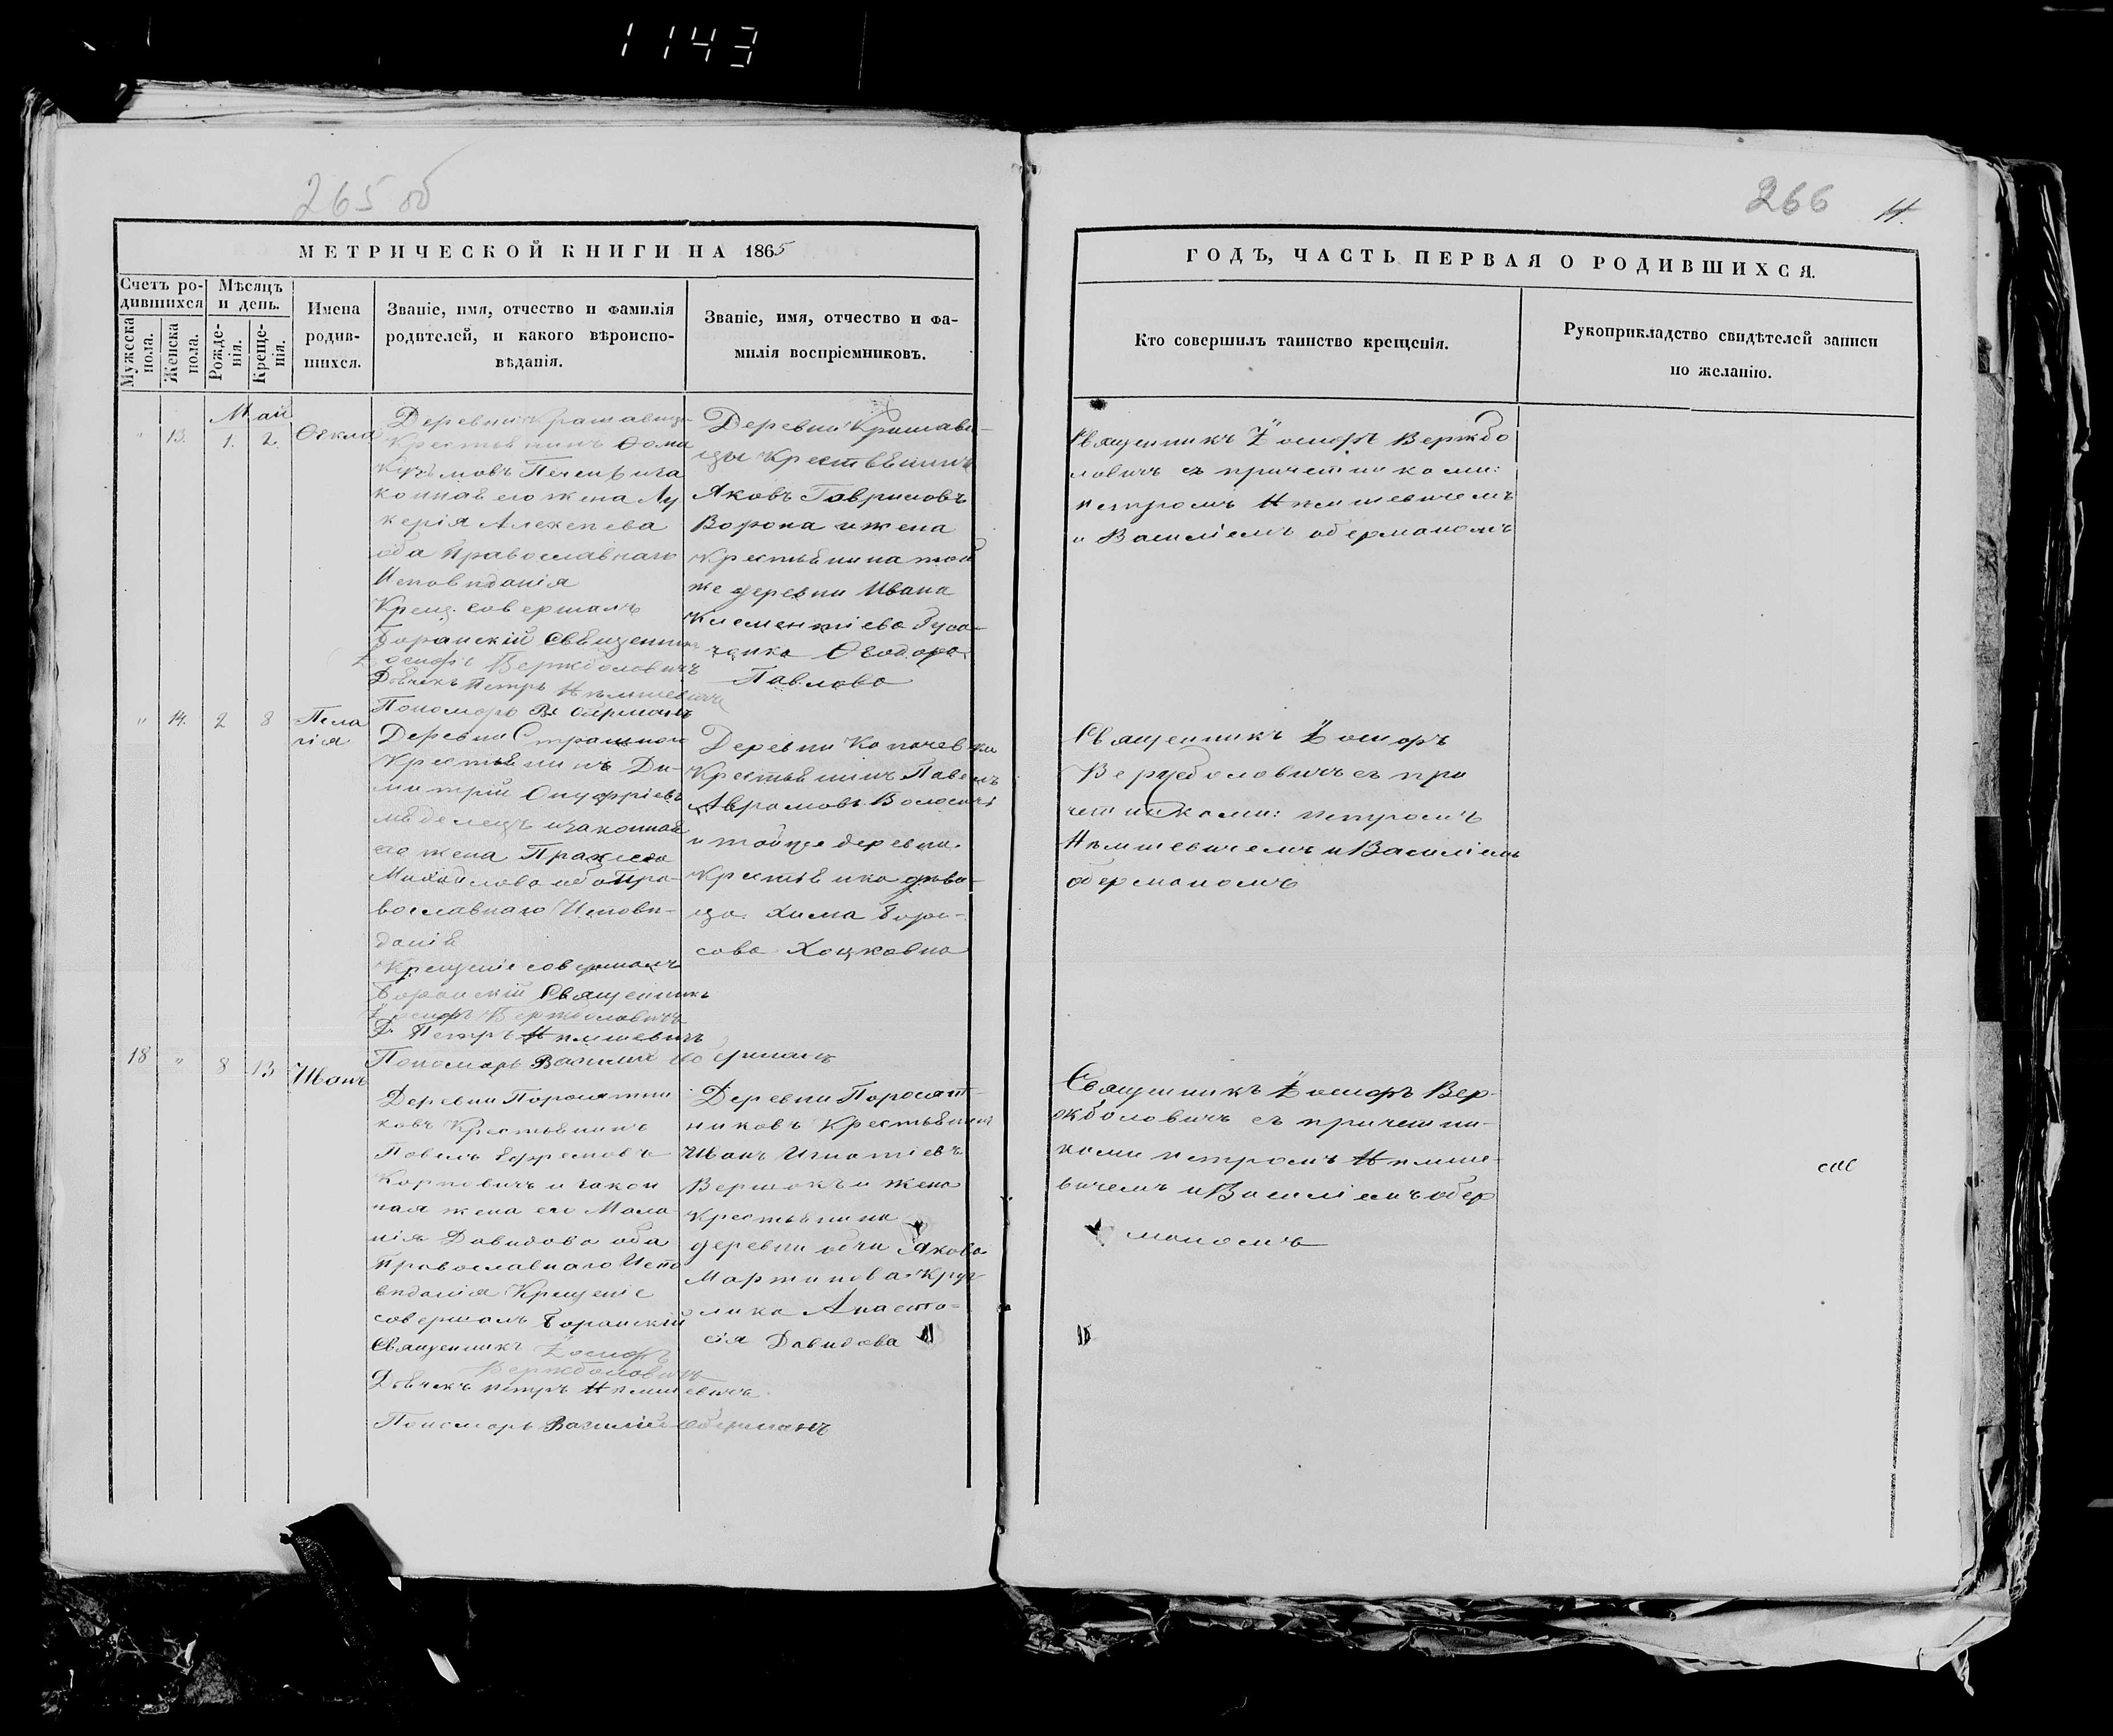 1143
265 об
МЕТРИЧЕСКОЙ КНИГИ НА 1865
Счетъ ро-
дившихся
Мужеска
пола.
Женска
пола.
Мѣсяцъ
и день.
Рожде-
нія.
Креще-
нія.
Имена
родив-
шихся.
Званіе, имя, отчество и фамилія
родителей, и какого вѣроиспо-
вѣданія.
Званіе, имя, отчество и фа-
милія воспріемниковъ.
Май
" 13. 1. 2. Ѳекла
Деревни
Крестьянинъ Ѳома
конная его жена Лу
керія Алексеева
оба Православнаго
Исповиданія
Крещ. совершалъ
Священникъ
Іосифъ Вержболовичъ
Дьячекъ Петръ
Пономарь
Деревни
цы Крестьянинъ
Яковъ Гавриловъ
Ворона и жена
Крестьянина той
же деревни Ивана
Клементіева Гуса-
чонка Ѳеодора
Павлова
" 14. 2 8 Пела
гія
Деревни
Крестьянинъ Ди-
митрій Онуфріевъ
и законная
его жена
Михайлова оба Пра-
вославнаго Испови-
данія
Крещеніе совершалъ
Священникъ
Іосифъ Вержболовичъ
Д. Петръ
Пономарь Василий Оберманъ
Деревни
Крестьянинъ Павелъ
Аврамовъ
и тойже деревни
Крестьянка дѣви-
ца Хима Бори-
сова Хоцковна
18 " 8 13 Иванъ
Деревни Поросятни
ковъ Крестьянинъ
Павелъ Ефремовъ
Карповичъ и закон
ная жена его Мала
нія Давидова оба
Православнаго Испо
виданія Крещеніе
совершалъ
Священникъ Іосифъ
Вержболовичъ
Дьячекъ Петръ
Пономарь Василий Оберманъ
Деревни Поросят-
никовъ Крестьянинъ
Иванъ Игнатіевъ
Вершокъ и жена
Крестьянина
деревни Якова
Мартинова Круг
лика Анаста-
сія Давидова
266 11.
ГОДЪ, ЧАСТЬ ПЕРВАЯ О РОДИВШИХСЯ.
Кто совершилъ таинство крещенія.
Рукоприкладство свидѣтелей записи
по желанію.
Священникъ Іосифъ Вержбо
ловичъ съ причетниками:
петромъ
и Василіемъ оберманомъ
Священникъ Іосифъ
Вержболовичъ съ при
четниками: петромъ
и Василіемъ
оберманомъ
Священникъ Іосифъ Вер-
жболовичъ съ причетни-
ками петромъ
вичемъ и Василіемъ обер
маномъ